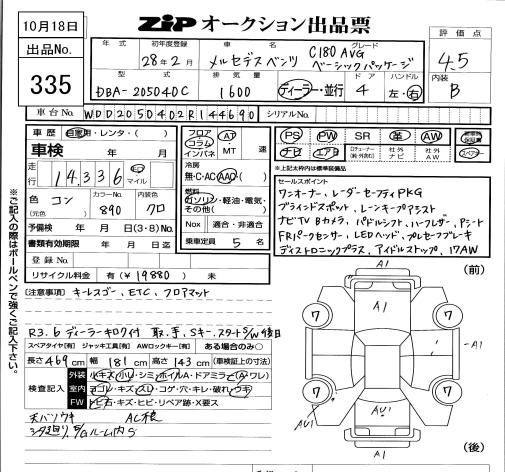 10月18日
ZIP オークション出品票
出品No.
335
年式
初年度登録
28年2月
車名
メルセデスベンツ
グレード
C180 AVG
ベーシックパッケージ
評価点
4.5
内装
B
型式
DBA-205040C
排気量
1600
ディーラー・並行
ドア
4
ハンドル
左・右
車台No.
WDD2050402R144690
シリアルNo.
車歴
自家用・レンタ・( )
車検 年 月
走行
14,336
km
マイル
色
コン
(元色)
カラーNo.
890
内装色
クロ
予備検 年 月 日(3・8)No.
書類有効期限 年 月 日迄
登録No.
リサイクル料金 有(¥19880) 未
フロア
コラム
インパネ
AT
MT 速
冷房
無・C・AC・AAC・( )
燃料
ガソリン・軽油・電気・
その他( )
Nox 適合・非適合
乗車定員 5 名
PS PW SR 革 AW
ナビ エアB
社外ナビ
社外AW
※上記太枠内は標準装備品
セールスポイント
ワンオーナー、レーダーセーフティPKG
ブラインドスポット、レーンキープアシスト
ナビTV Bカメラ、パドルシフト、ハーフレザー、Pシート
FRパークセンサー、LEDヘッド、プレセーフブレーキ
ディストロニックプラス、アイドルストップ、17AW
[注意事項] キーレスゴー、ETC、フロアマット
R3.6 ディーラーキロク付 取、手、Sキー、スタートS/W後日
スペアタイヤ[有] ジャッキ工具[有] AWロックキー[有] ある場合のみ○
長さ469cm 幅181cm 高さ143cm (車検証上の寸法)
検査記入
外装 小キズ・小U・シミ・ホイルA・ドアミラー(A・ワレ)
室内 ヨゴレ・キズ・スレ・コゲ・穴・キレ・破れ・ウキ
FW トビ石・キズ・ヒビ・リペア跡・X要ス
天バリウキ AC検
※ご記入の際はボールペンで強くご記入下さい。
A1
(前)
7
7
A1
A1
7
7
AU1
AU1
A1
(後)